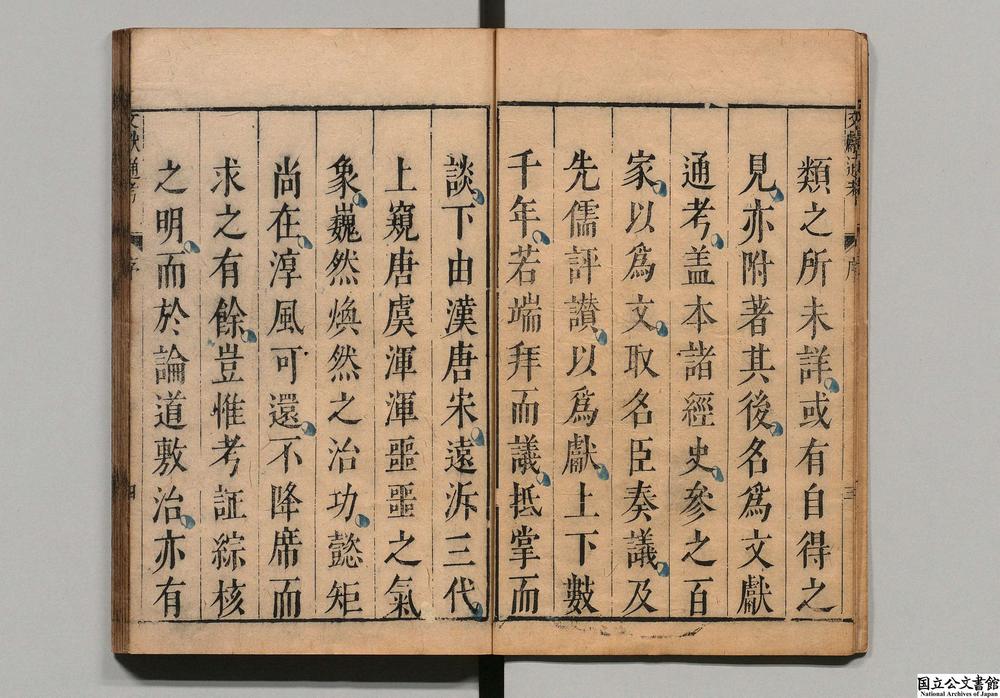 類之所未詳或有自得之
見亦附著其後名爲文獻
通考盖本諸經史參之百
家以爲文取名臣奏議及
先儒評讃以爲獻上下數
千年若端拜而議抵掌而
談下由漢唐宋遠泝三代
上窺唐虞渾渾噩噩之氣
象巍然煥然之治功懿矩
尚在淳風可還不降席而
求之有餘豈惟考証綜核
之明而於論道敷治亦有
文獻通考
序
三
文獻通考
序
四
国立公文書館
National Archives of Japan